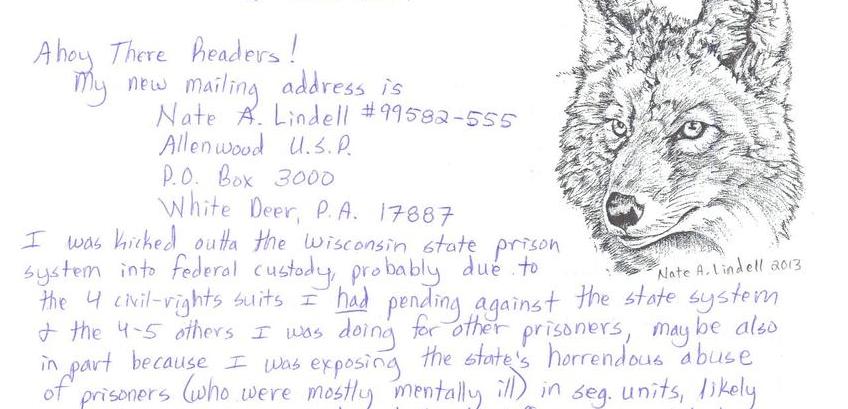 Ahoy There Readers!
My new mailing address is
Nate A. Lindell #99582-555
Allenwood U.S.P.
P.O. Box 3000
White Deer, P.A. 17887
I was kicked outta the Wisconsin state prison
system into federal custody, probably due to
Nate A. Lindell 2013
the 4 civil-rights suits I had pending against the state system
& the 4-5 others I was doing for other prisoners, maybe also
in part because I was exposing the state's horrendous abuse
of prisoners (who were mostly mentally ill) in seg. units, likely